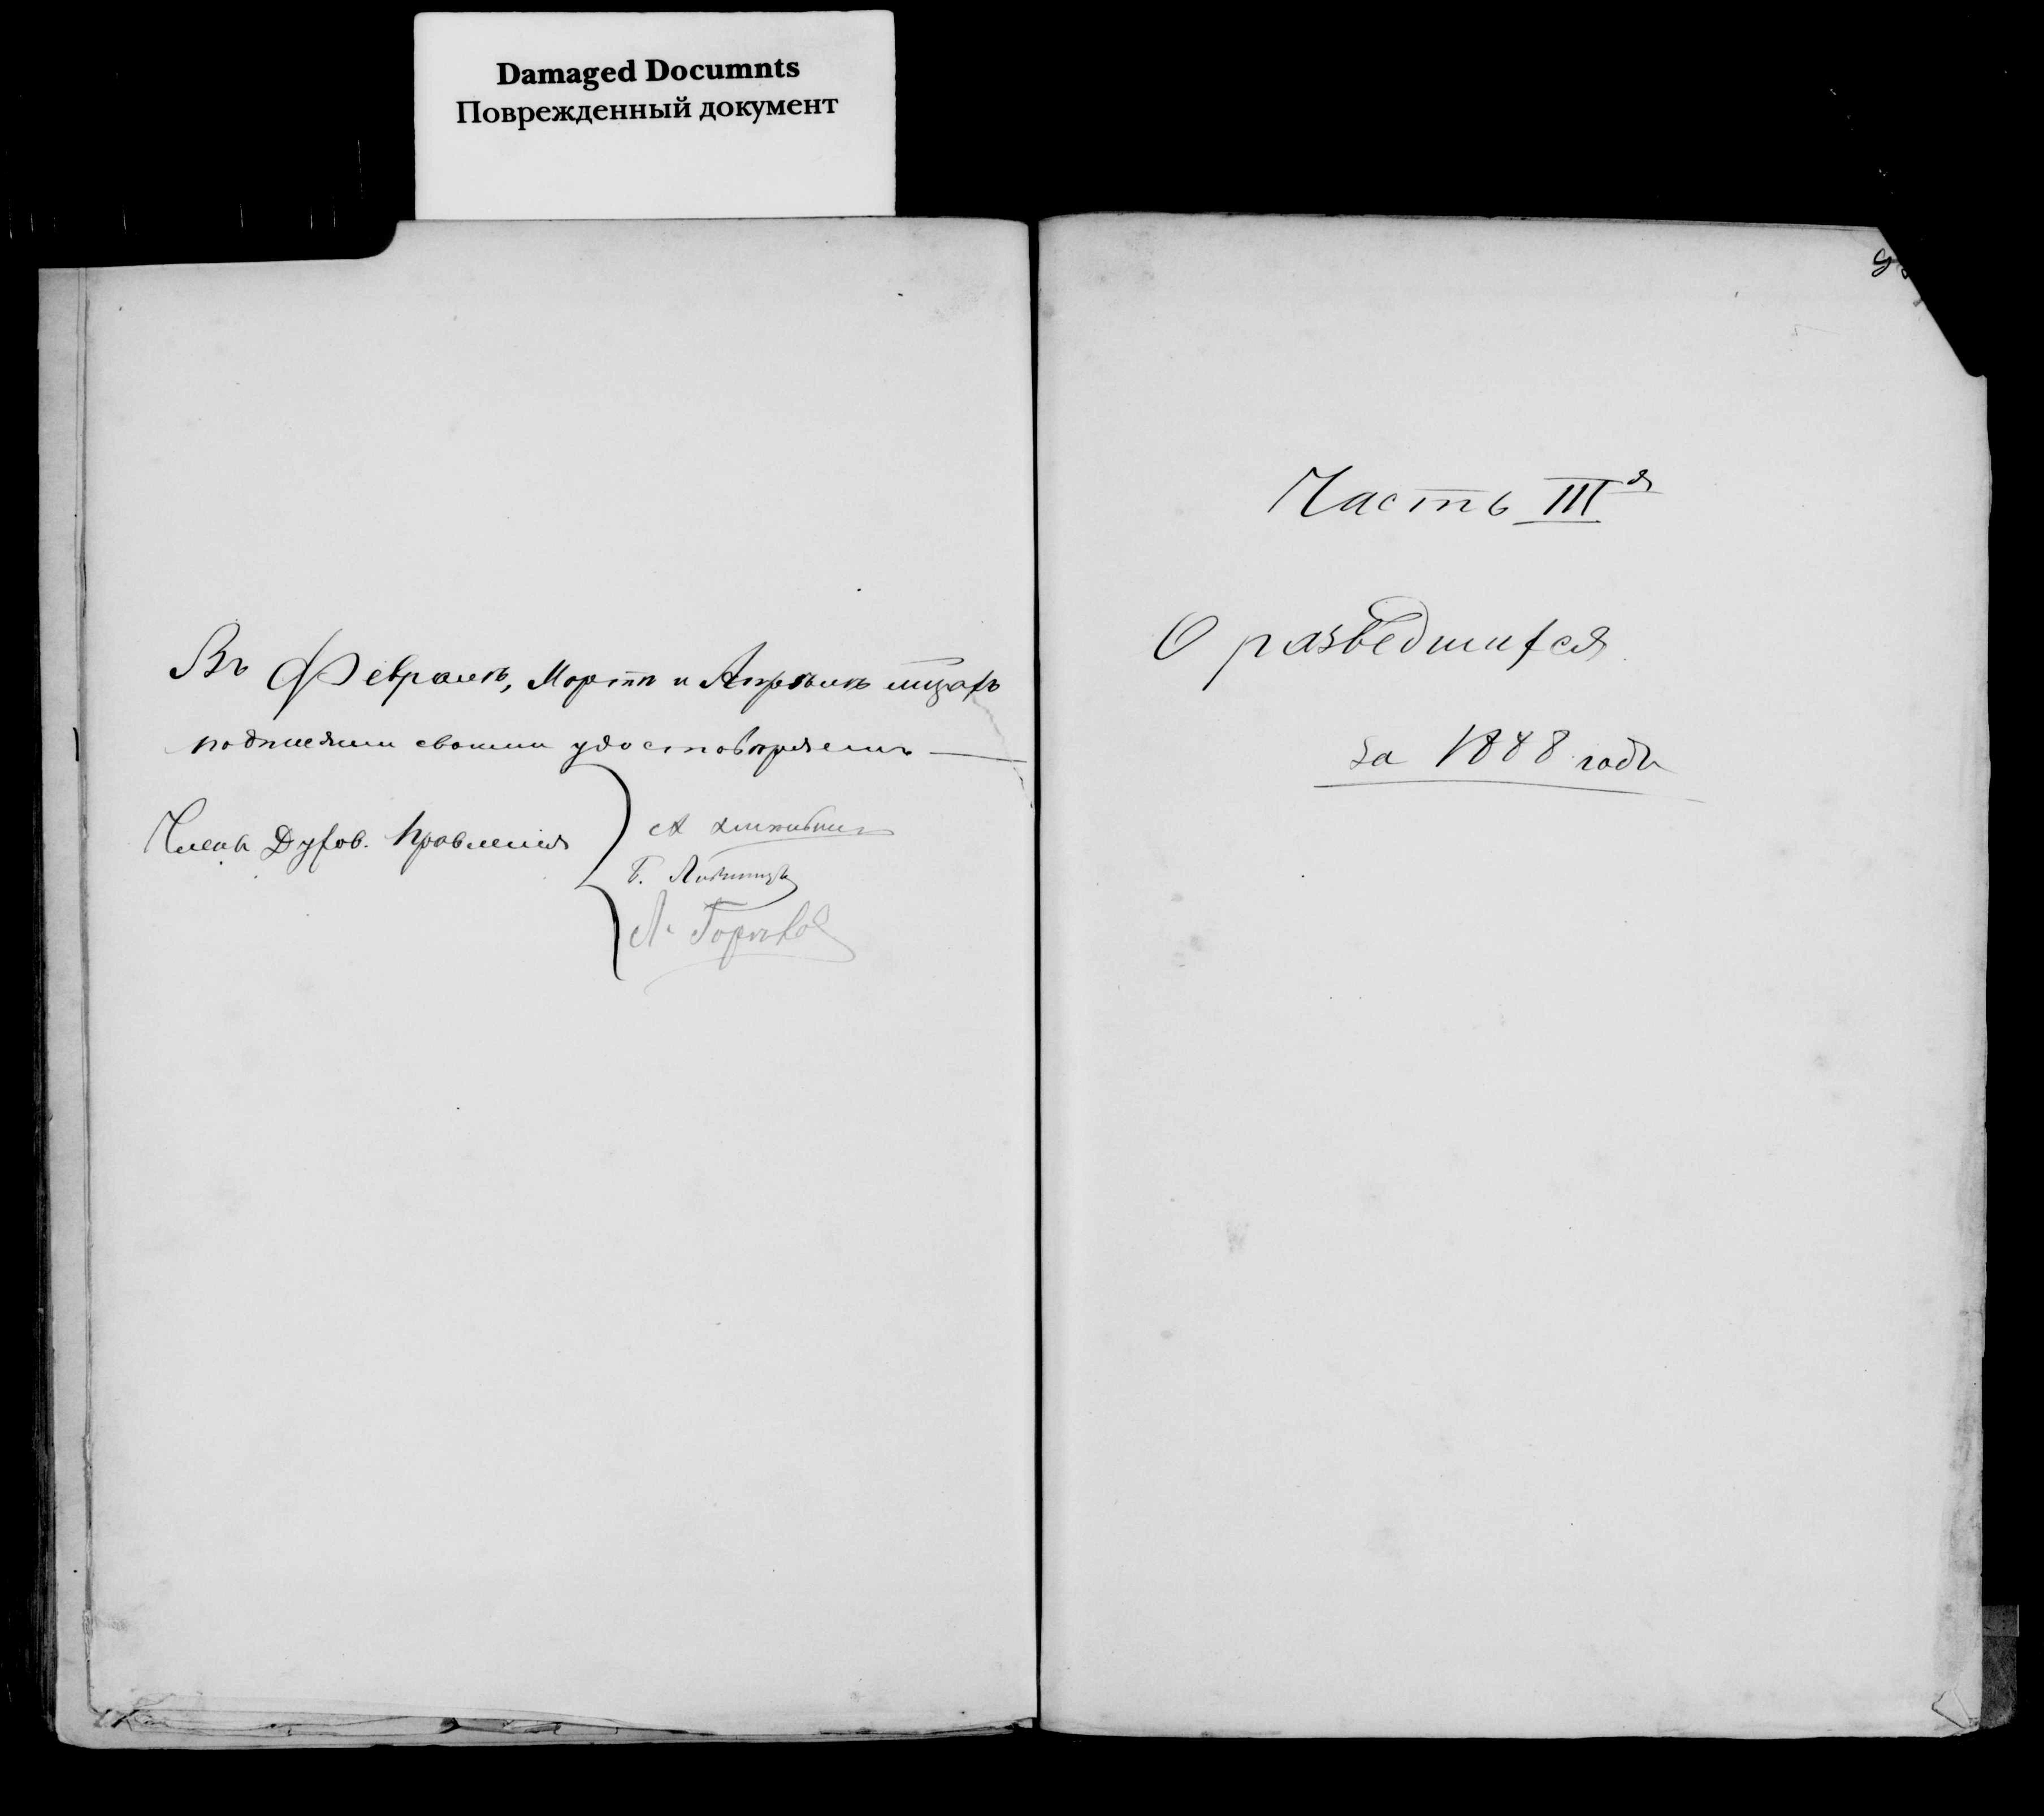 Damaged Documnts
Поврежденный документ
Въ Февралѣ, Мартѣ и Апрѣлѣ мцахъ
подписями своими удостовѣряемъ
Члены Духов. Правленія
А
Б.
Л.
Часть III я
О разведшихся
за 1888 годъ